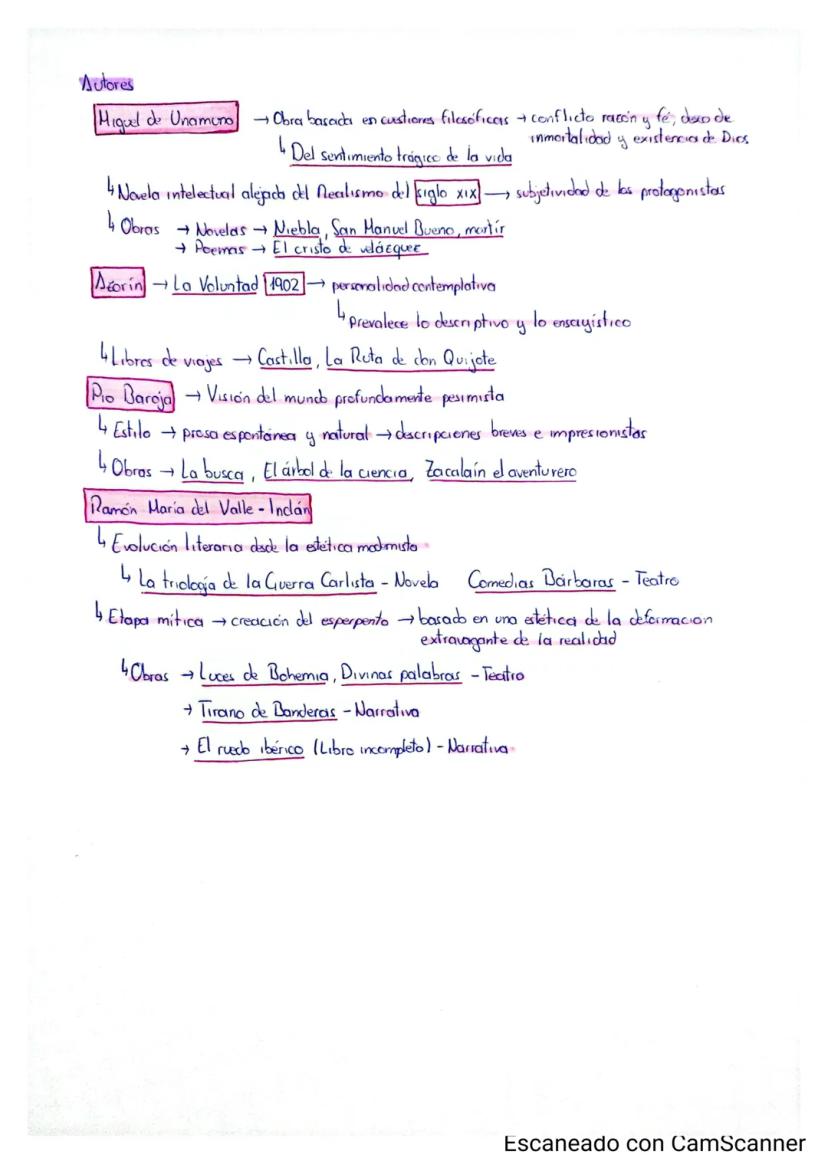 Autores
Miguel de Unamuno → Obra basada en custiones filosóficas → conflicto razón y fé, deseo de
inmortalidad y existencia de Dios.
↳ Del sentimiento trágico de la vida
↳ Novela intelectual alejada del Realismo del siglo XIX → subjetividad de los protagonistas
↳ Obras → Novelas → Niebla, San Manuel Bueno, martir
→ Poemas → El cristo de velázquez
Azorín → La Voluntad 1902 → personalidad contemplativa
↳ Prevalece lo descriptivo y lo ensayístico
↳ Libros de viajes → Castilla, La Ruta de don Quijote
Pio Baroja → Visión del mundo profundamente pesimista
↳ Estilo → prosa espontánea y natural → descripciones breves e impresionistas
↳ Obras → La busca, El árbol de la ciencia, Zacalaín el aventurero
Ramón María del Valle-Inclán
↳ Evolución literaria desde la estética modernista
↳ La triología de la Guerra Carlista - Novela Comedias Bárbaras - Teatro
↳ Etapa mítica → creación del esperpento → basado en una estética de la deformación
extravagante de la realidad
↳ Obras → Luces de Bohemia, Divinas palabras - Teatro
→ Tirano de Banderas - Narrativa
→ El ruedo ibérico (Libro incompleto) - Narrativa
Escaneado con CamScanner